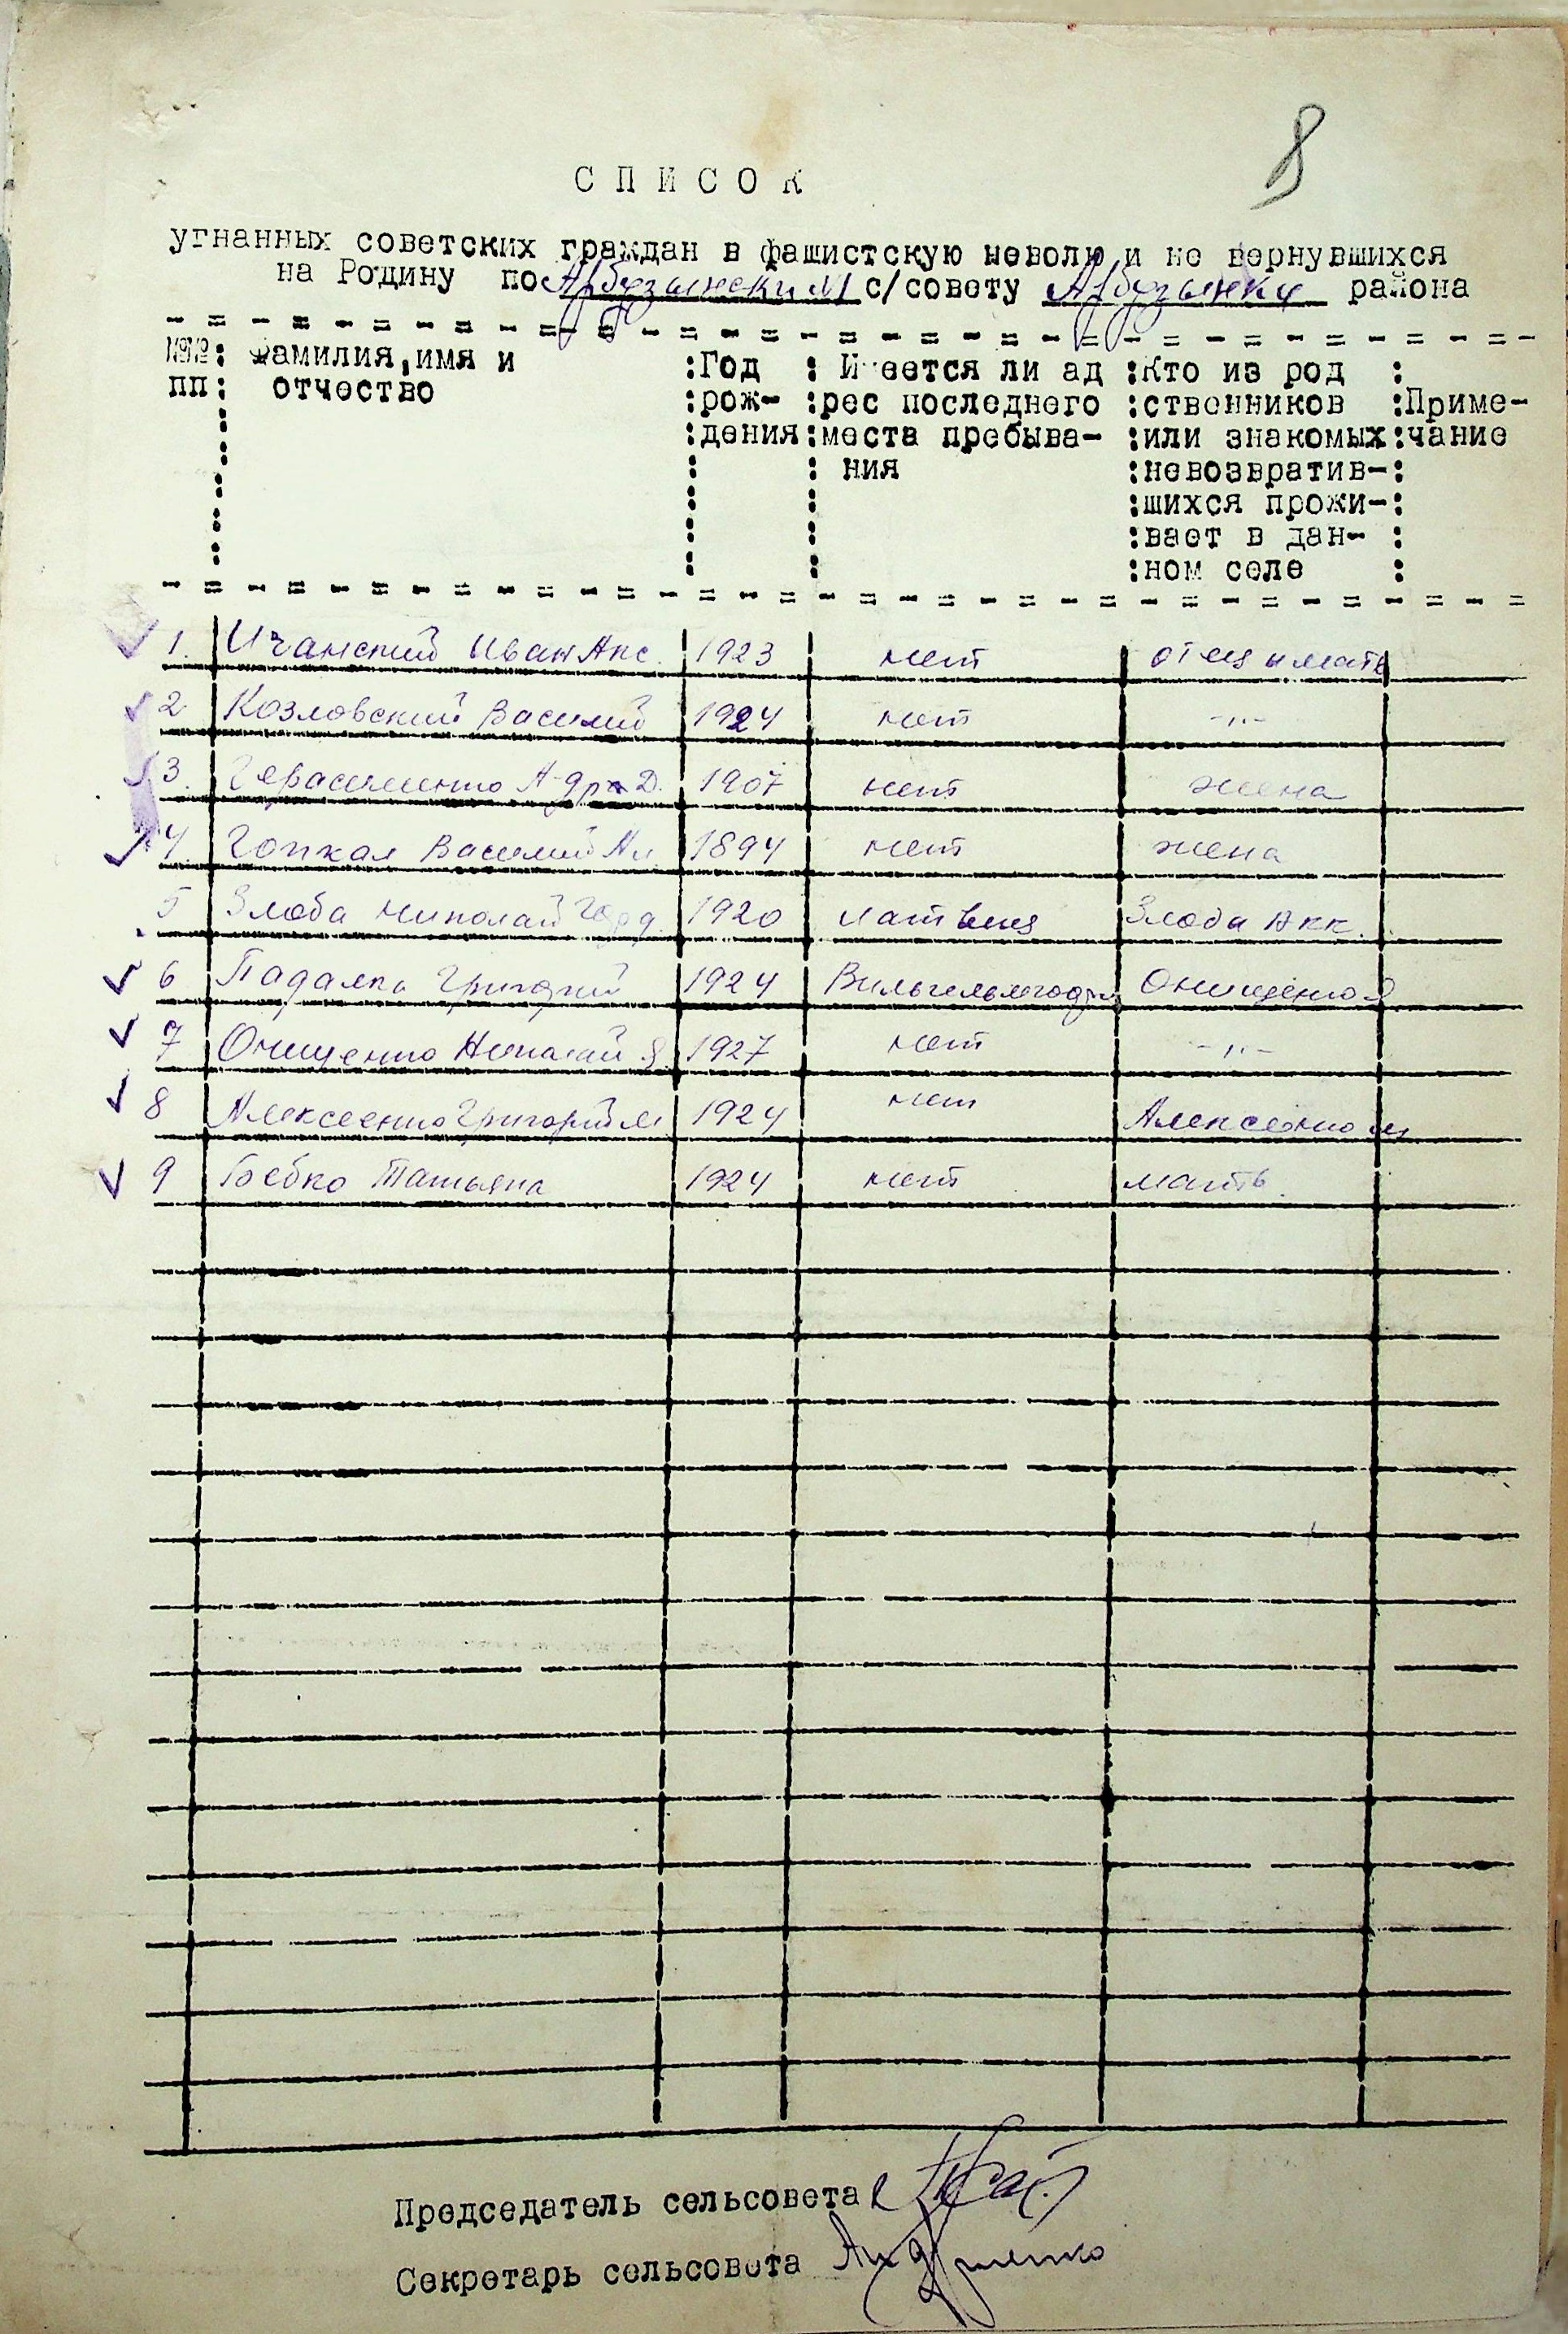 8
СПИСОК
угнанных советских граждан в фашистскую неволю и не вернувшихся
на Родину по Арбузинским с/совету Арбузинка района
№№ пп : Фамилия, имя и отчество : Год рождения : Имеется ли адрес последнего места пребывания : Кто из родственников или знакомых невозвратившихся проживает в данном селе : Примечание
1. Ичанский Иван Апс. 1923 нет отец и мать
2 Козловский Василий 1924 нет -"-
3. Герасименко А-др Д. 1907 нет жена
4 Гопкал Василий Ан 1894 нет жена
5 Злоба Николай Горд 1920 Латвия Злоба Акк.
6 Падалка Григорий 1924 Онищенко Я
7 Онищенко Николай Я 1927 нет -"-
8 Алексеенко Григорий М 1924 нет Алексеенко М
9 Бебко Татьяна 1924 нет мать
Председатель сельсовета
Секретарь сельсовета